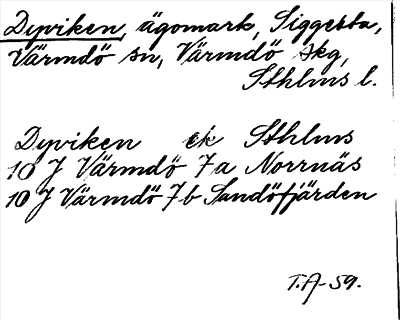 Dyviken, ägomark, Siggesta,
Värmdö sn, Värmdö skg,
Sthlms l.
Dyviken ek Sthlms
10 J Värmdö 7a Norrnäs
10 J Värmdö 7b Sandöfjärden
T.A-59.